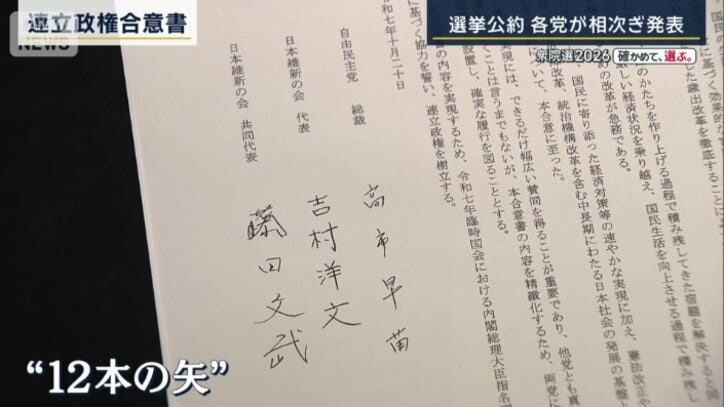 連立政権合意書
NEWS
選挙公約 各党が相次ぎ発表
衆院選2026 確かめて、選ぶ。
のかたちを作り上げる過程で積み残してきた宿題を解決すると
厳しい経済状況を乗り越え、国民生活を向上させる過程で積み残し
の改革が急務である。
、国民に寄り添った経済対策等の速やかな実現に加え、憲法改正や
改革、統治機構改革を含む中長期にわたる日本社会の発展の基盤と
について、本合意に至った。
実現には、できるだけ幅広い賛同を得ることが重要であり、他党とも真
くことは言うまでもないが、本合意書の内容を精緻化するため、両党に
設置し、確実な履行を図ることとする。
書の内容を実現するため、令和七年臨時国会における内閣総理大臣指名
に基づく協力を誓い、連立政権を樹立する。
令和七年十月二十日
自由民主党 総裁
高市早苗
日本維新の会 代表
吉村洋文
日本維新の会 共同代表
藤田文武
“12本の矢”